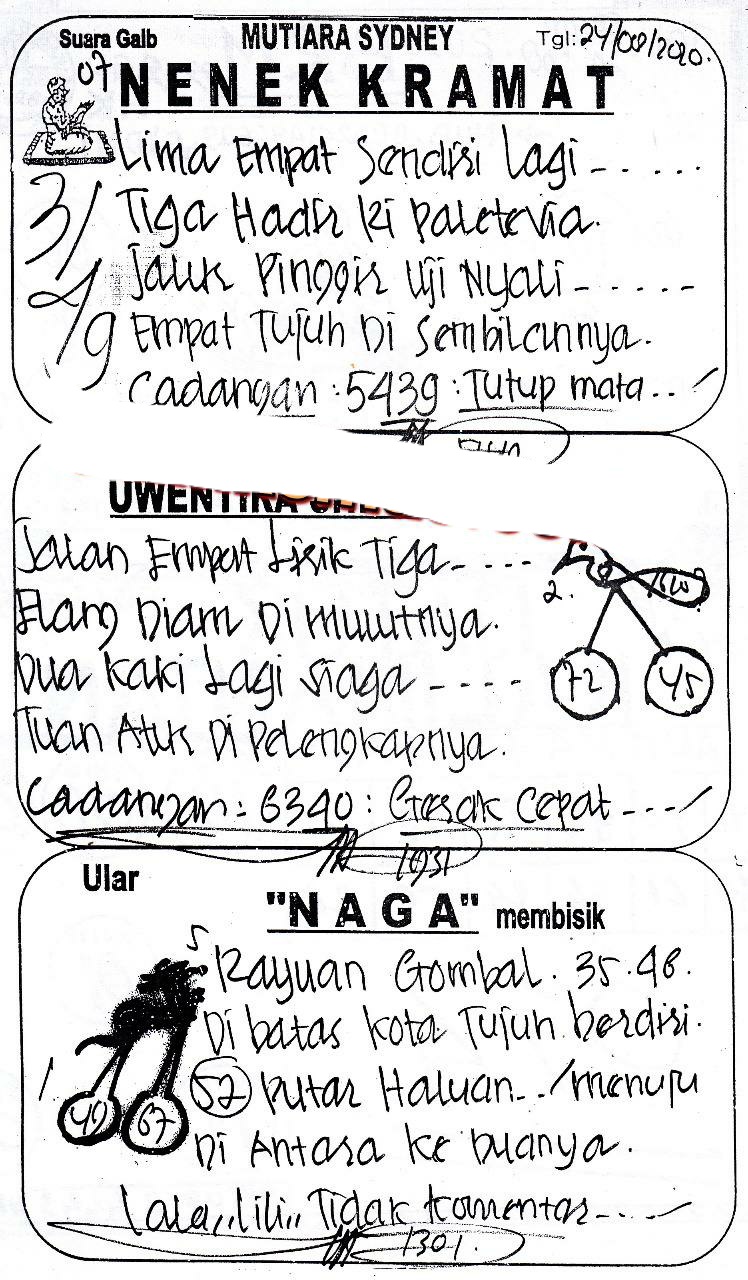 Suara Galb
MUTIARA SYDNEY
Tgl: 24/08/2020.
07
NENEK KRAMAT
Lima Empat Sendiri Lagi - . . . . .
3/ Tiga Hadir Ki Paletevia.
Jalur Pinggir Uji Nyali - . - . - -
4/9 Empat Tujuh Di Sembilannya.
Cadangan : 5439 : Tutup mata . . /
UWENTIRA
Jalan Empat Lirik Tiga - . . . .
2.
Elang Diam Di mulutnya.
Dua Kaki Lagi Siaga - - - -
72 45
Tuan Atur Di Pelengkapnya.
Cadangan : 6340 : Gerak Cepat - - - - /
1931
Ular
"NAGA" membisik
5
Rayuan Gombal . 35 . 46 .
Di batas kota Tujuh berdiri.
1. 49 67
52 Putar Haluan - . . /menuju
Di Antara Ke Duanya .
Lala,,lili,, Tidak komentar - - . - /
1301.